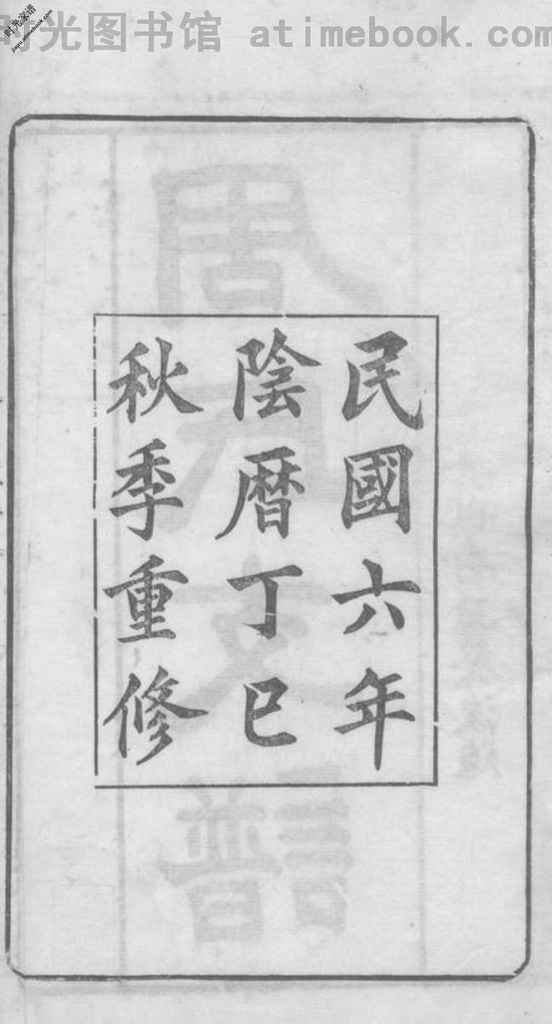 时光图书馆 atimebook.com
民國六年
陰暦丁巳
秋季重修